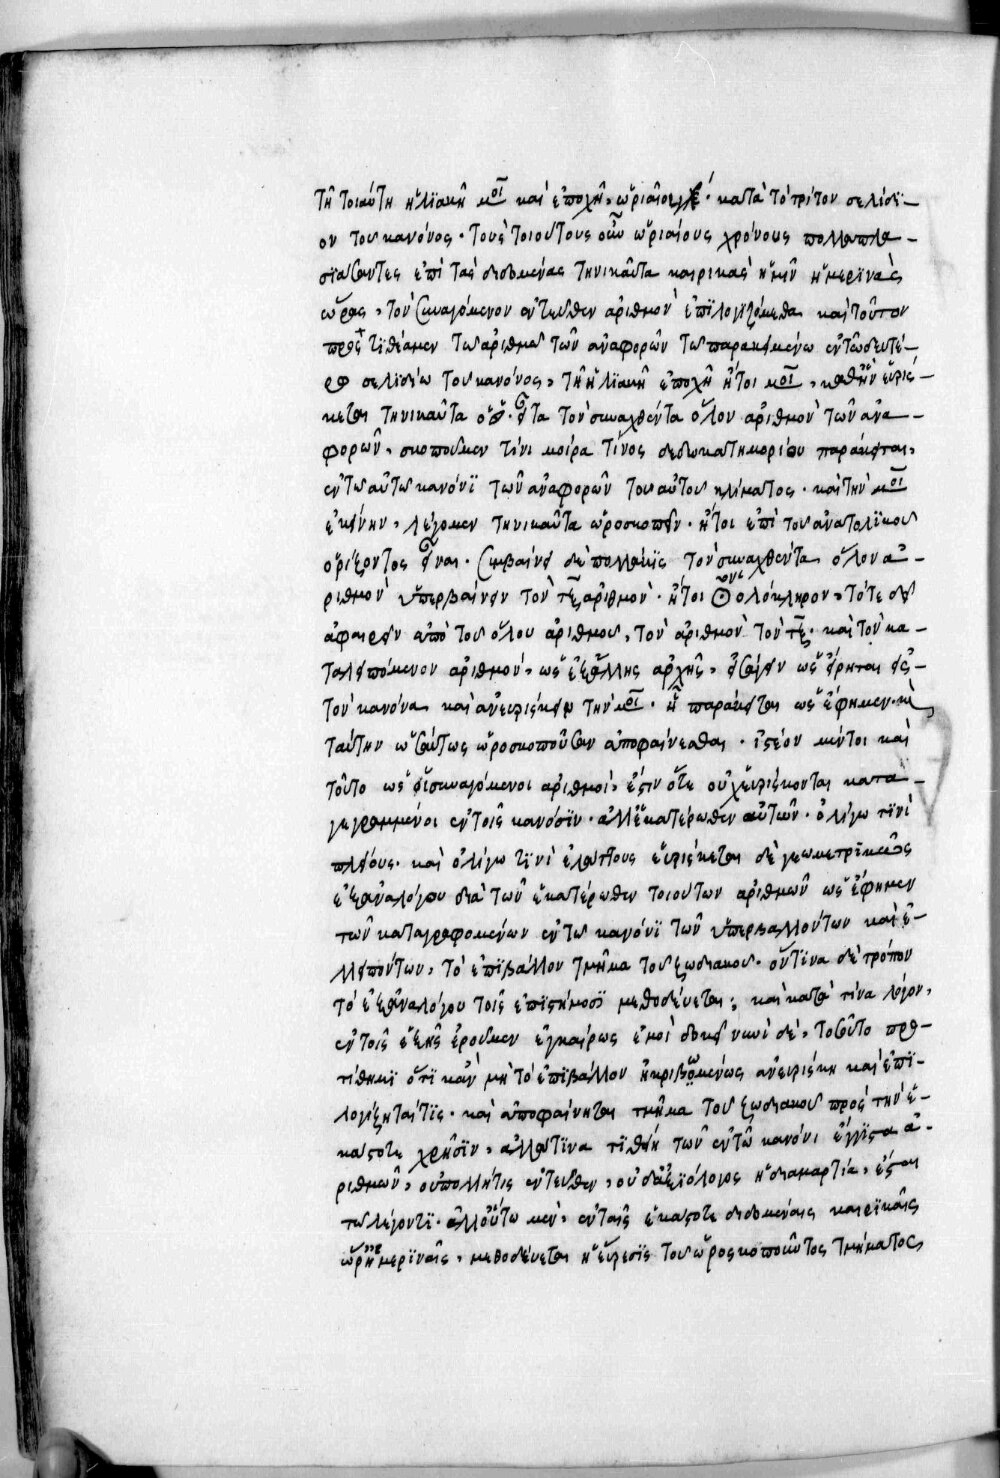 τῆ τοιαύτη ἡλιακῆ μοῖ καὶ ἐποχῆ, ὡριαῖοι χρ· κατὰ τὸ τρίτον σελίδϊ–
ον τοῦ κανόνος· τοὺς τοιούτους οὖν ὡριαίους χρόνους πολλαπλα–
σιάσαντες ἐπὶ τὰς διδομένας τηνικαῦτα καιρικὰς ἡμῖν ἡμερϊνὰς
ὥρας, τὸν συναγόμενον ἐντεῦθεν ἀριθμὸν ἐπϊλογϊζόμεθα καὶ τοῦτον
προςτϊθέαμεν τῶ ἀριθμῶ τῶν ἀναφορῶν τῶ παρακειμένω ἐν τῶ δευτέ–
ρω σελιδίω τοῦ κανόνος, τῆ ἡλϊακῆ ἐποχῆ ἤτοι μοῖ, καθ' ἣν εὑρίς–
κεται τηνικαῦτα ὁ ☉· εἶτα τὸν συναχθέντα ὅλον ἀριθμὸν τῶν ἀνα–
φορῶν, σκοποῦμεν τίνι μοίρα τίνος δωδεκατημορίου παράκειται,
ἐν τῶ αὐτῶ κανόνϊ τῶν ἀναφορῶν τοῦ αὐτοῦ κλίματος· καὶ τὴν μοῖ
ἐκείνην, λέγομεν τηνικαῦτα ὡροσκοπεῖν· ἤτοι ἐπὶ τοῦ ἀνατολϊκοῦ
ὁρίζοντος εἶναι· συμβαίνει δὲ πολλάκις τὸν συναχθέντα ὅλον ἀ–
ριθμὸν ὑπερβαίνειν τὸν τξ ἀριθμὸν· ἤτοι ὁλόκληρον, τότε δεῖ
ἀφαιρεῖν ἀπὸ τοῦ ὅλου ἀριθμοῦ, τὸν ἀριθμὸν τὸν τξ· καὶ τὸν κα–
ταλειπόμενον ἀριθμὸν, ὡς ἐξ ἄλλης ἀρχῆς, εἰσάγειν ὡς εἴρηται εἰς
τὸν κανόνα καὶ ἀνευρίσκειν τὴν μοῖ· ἧ παράκειται ὡς ἔφημεν· καὶ
ταύτην ὡσαύτως ὡροσκοποῦσαν ἀποφαίνεσθαι· ἰστέον μέντοι καὶ
τοῦτο ὡς οἱ συναγόμενοι ἀριθμοὶ, ἔστιν ὅτε οὐχ εὑρίσκονται κατα–
γεγραμμένοι ἐν τοῖς κανόσϊν· ἀλλ' ἑκατέρωθεν αὐτῶν· ὀλίγω τϊνὶ
πλείους· καὶ ὀλίγω τϊνὶ ἐλάττους εὑρίσκεται δὲ γεωμετρϊκῶς
ἐξ ἀναλόγου διὰ τῶν ἑκατέρωθεν τοιούτων ἀριθμῶν ὡς ἔφημεν
τῶν καταγραφομένων ἐν τῶ κανόνϊ τῶν ὑπερβαλλόντων καὶ ἐλ–
λειπόντων, τὸ ἐπϊβάλλον τμῆμα τοῦ ζωδιακοῦ· οὗτινα δὲ τρόπον
τὸ ἐξ ἀναλόγου τοῖς ἐπϊστήμοσϊ μεθοδεύεται; καὶ κατὰ τίνα λόγον,
ἐν τοῖς ἑξῆς ἐροῦμεν ἐγκαίρως ἐμοὶ δοκεῖ νυνὶ δὲ, τοσοῦτο προ–
τίθημϊ ὅτϊ κἂν μὴ τὸ ἐπϊβάλλον ἠκριβωμένως ἀνευρίσκη καὶ ἐπϊ–
λογίζηται τϊς· καὶ ἀποφαίνηται τμῆμα τοῦ ζωδιακοῦ πρὸς τὴν ἑ–
κάστοτε χρῆσϊν, ἀλλ' ἅτϊνα τϊθείη τῶν ἐν τῶ κανόνι ἔγγϊστα ἀ–
ριθμῶν, οὐ πολλή τις ἐντεῦθεν, οὐδ' ἀξϊόλογος ἡ διαμαρτία, ἔσται
τῶ λέγοντϊ· ἀλλ' οὕτω μὲν, ἐν ταῖς ἑκάστοτε διδομέναις καιρϊκαῖς
ὥραις ἡμερϊναῖς, μεθοδεύεται ἡ εὕρεσϊς τοῦ ὡροςκοποῦντος τμήματος